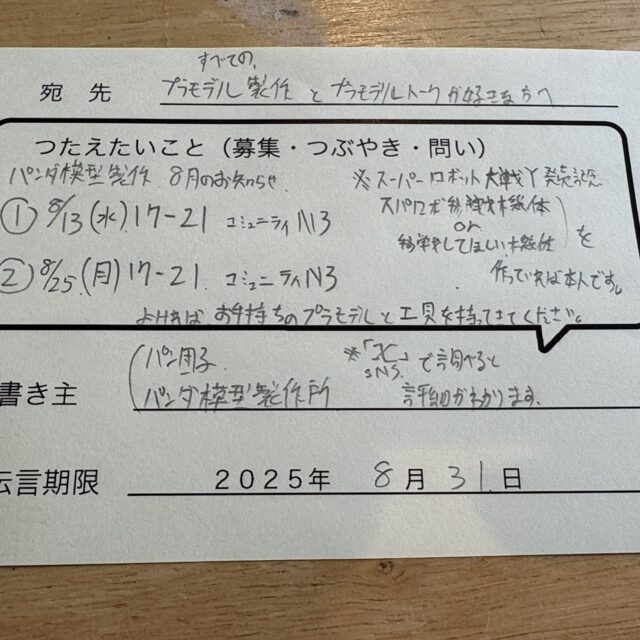 すべての
宛先 プラモデル製作とプラモデルトークが好きな方へ
つたえたいこと（募集・つぶやき・問い）
パンダ模型製作 8月のお知らせ
① 8/13(水) 17-21 コミュニティN3
② 8/25.(月) 17-21. コミュニティN3
※スーパーロボット大戦Y発売記念
スパロボ参戦機体
or
参戦してほしい機体
を
作っていれば本人です。
よければお手持ちのプラモデルと工具を持ってきてください。
書き主 パン用子
パンダ模型製作所
※「X」で調べると
SNS.
詳細がわかります.
伝言期限 2025年 8月31日